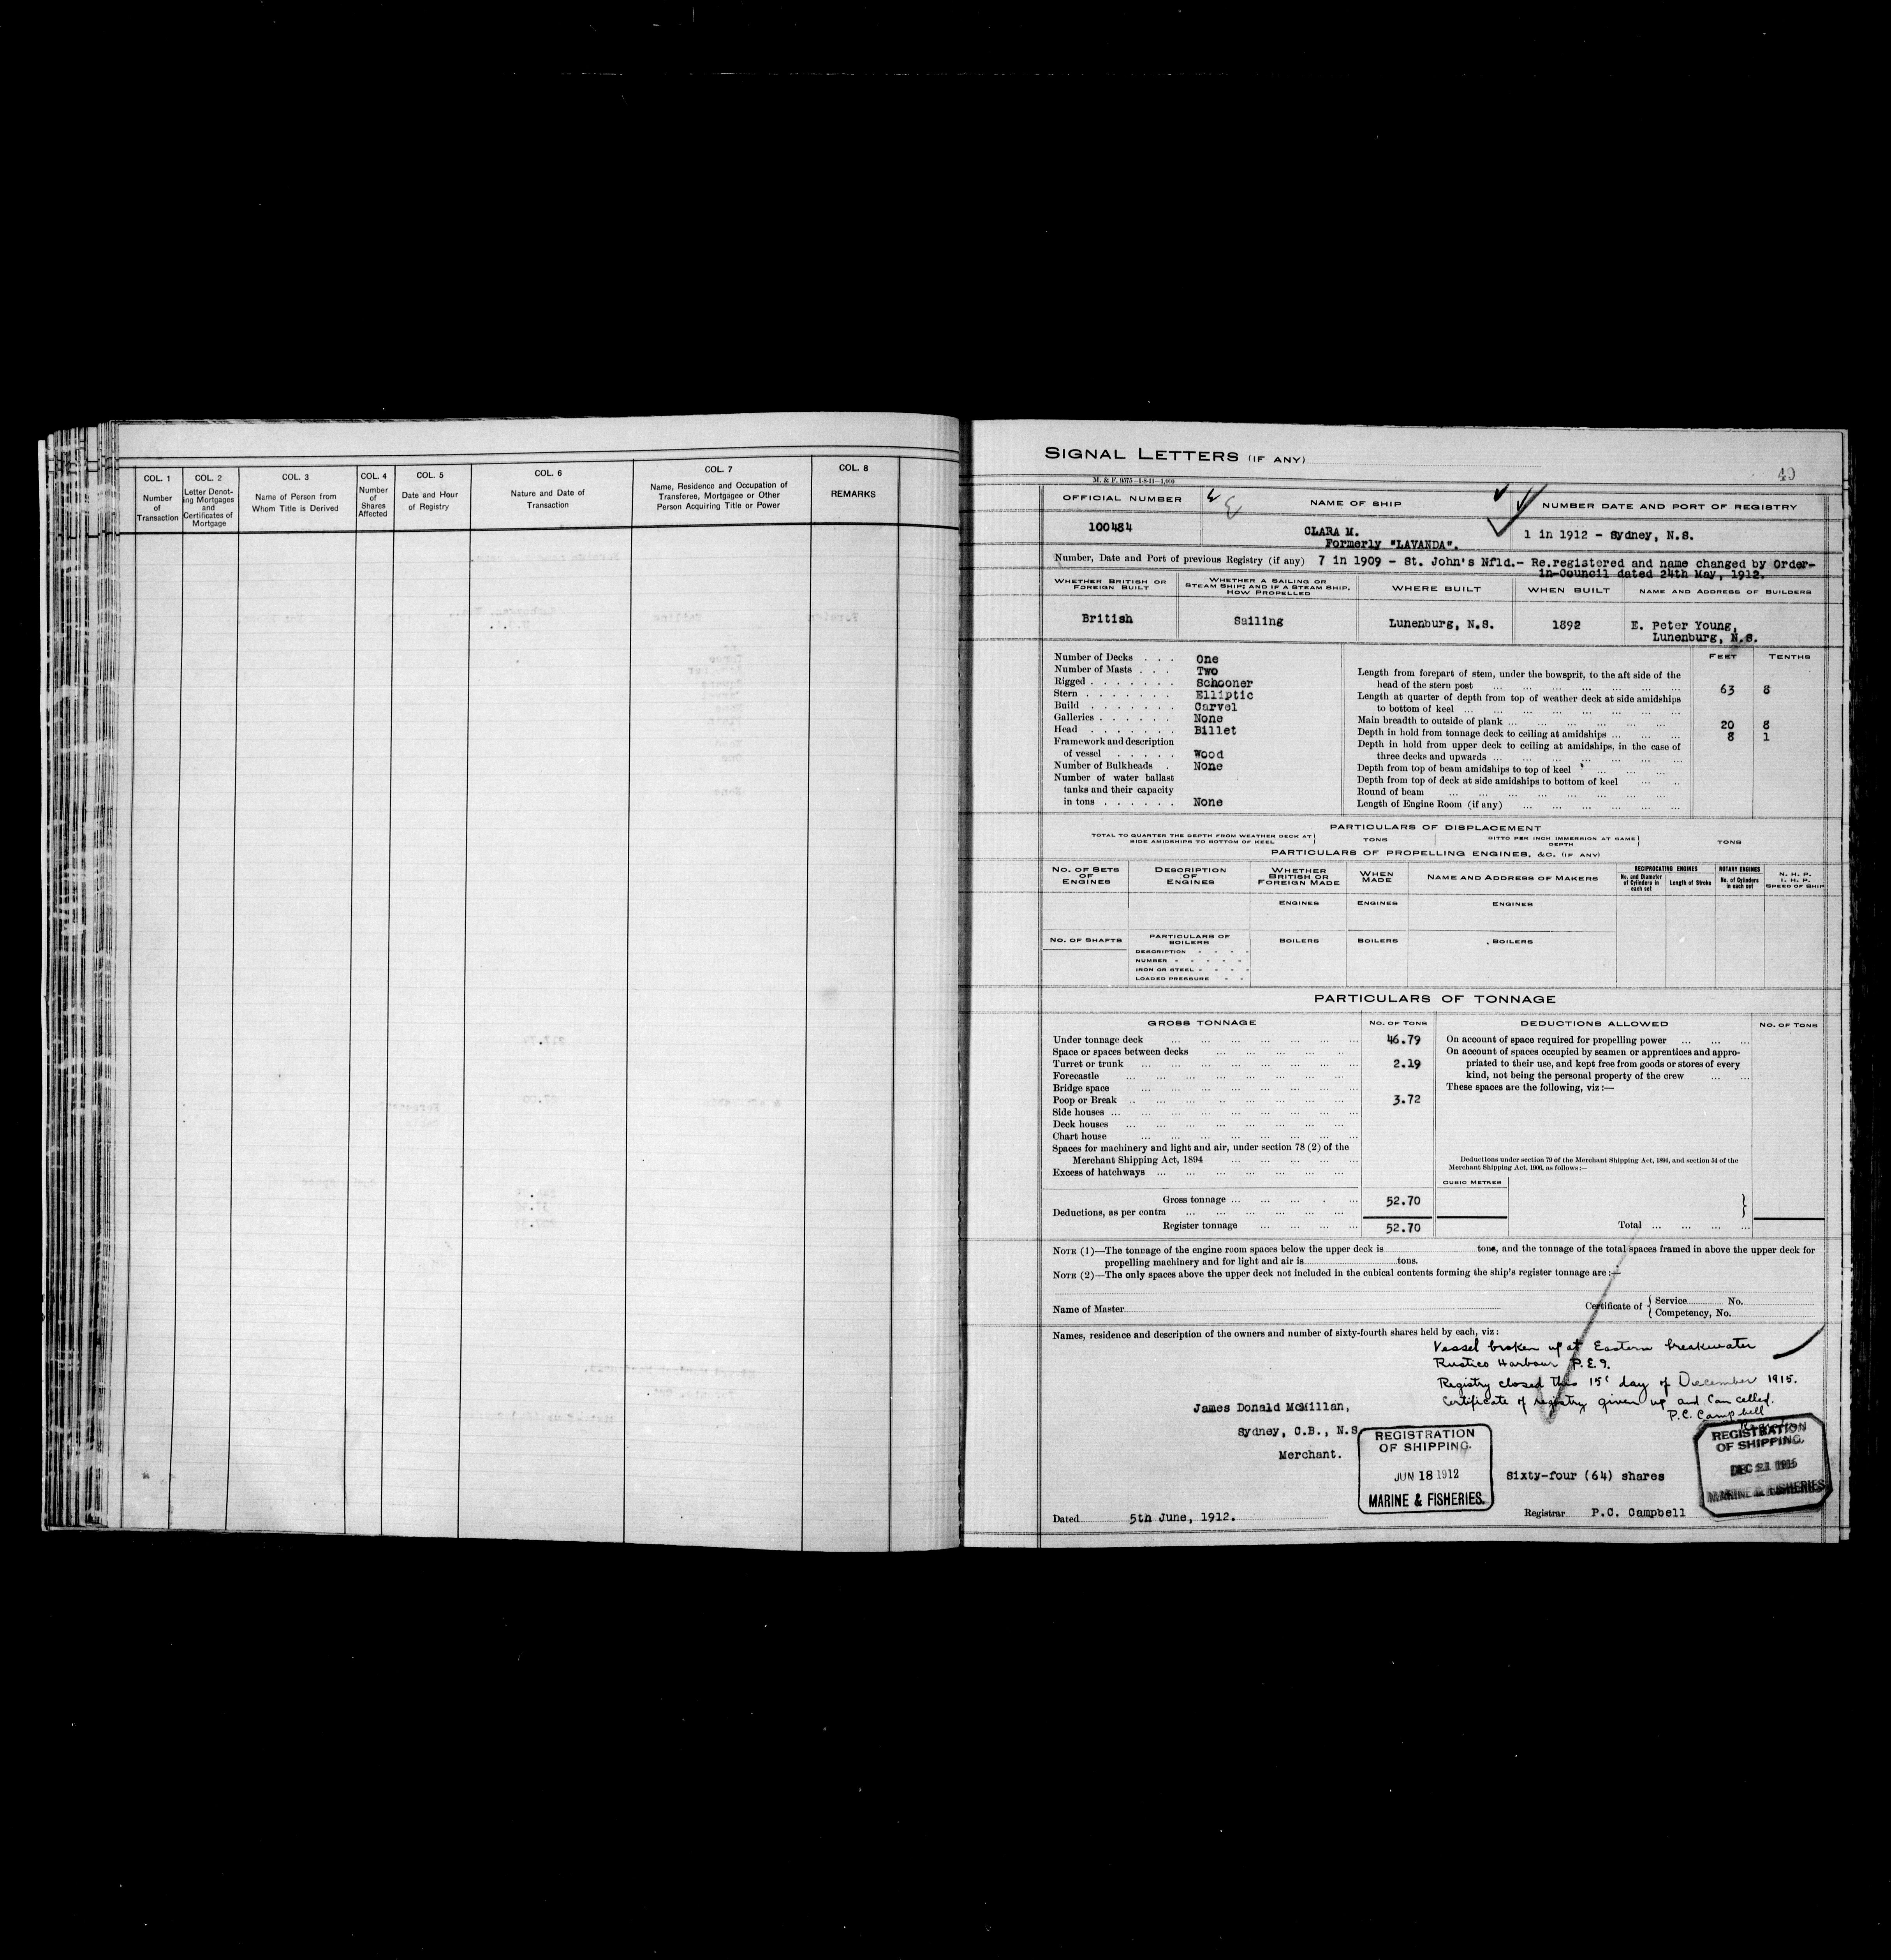 COL. 1
Number
of
Transaction
COL. 2
Letter Denot-
ing Mortgages
and
Certificates of
Mortgage
COL. 3
Name of Person from
Whom Title is Derived
COL. 4
Number
of
Shares
Affected
COL. 5
Date and Hour
of Registry
COL. 6
Nature and Date of
Transaction
COL. 7
Name, Residence and Occupation of
Transferee, Mortgagee or Other
Person Acquiring Title or Power
COL. 8
REMARKS
SIGNAL LETTERS (IF ANY)
M. & F. 9575—1-8-11—1,000
OFFICIAL NUMBER
NAME OF SHIP
NUMBER DATE AND PORT OF REGISTRY
100484
CLARA M.
Formerly "LAVANDA".
1 in 1912 - Sydney, N.S.
Number, Date and Port of previous Registry (if any) 7 in 1909 - St. John's Nfld.- Re.registered and name changed by Order-
in-Council dated 24th May, 1912.
WHETHER BRITISH OR
FOREIGN BUILT
WHETHER A SAILING OR
STEAM SHIP; AND IF A STEAM SHIP,
HOW PROPELLED
WHERE BUILT
WHEN BUILT
NAME AND ADDRESS OF BUILDERS
British
Sailing
Lunenburg, N.S.
1892
E. Peter Young,
Lunenburg, N.S.
FEET
TENTHS
Number of Decks . . . One
Number of Masts . . . Two
Rigged . . . . . . . Schooner
Stern . . . . . . . Elliptic
Build . . . . . . . Carvel
Galleries . . . . . . None
Head . . . . . . . Billet
Framework and description
of vessel . . . . Wood
Number of Bulkheads . None
Number of water ballast
tanks and their capacity
in tons . . . . . . None
Length from forepart of stem, under the bowsprit, to the aft side of the
head of the stern post ... 63 8
Length at quarter of depth from top of weather deck at side amidships
to bottom of keel ...
Main breadth to outside of plank ... 20 8
Depth in hold from tonnage deck to ceiling at amidships ... 8 1
Depth in hold from upper deck to ceiling at amidships, in the case of
three decks and upwards ...
Depth from top of beam amidships to top of keel ...
Depth from top of deck at side amidships to bottom of keel ...
Round of beam ...
Length of Engine Room (if any) ...
PARTICULARS OF DISPLACEMENT
TOTAL TO QUARTER THE DEPTH FROM WEATHER DECK AT
SIDE AMIDSHIPS TO BOTTOM OF KEEL
TONS
DITTO PER INCH IMMERSION AT SAME
DEPTH
TONS
PARTICULARS OF PROPELLING ENGINES, &C. (IF ANY)
NO. OF SETS
OF
ENGINES
DESCRIPTION
OF
ENGINES
WHETHER
BRITISH OR
FOREIGN MADE
WHEN
MADE
NAME AND ADDRESS OF MAKERS
RECIPROCATING ENGINES
No. and Diameter
of Cylinders in
each set
Length of Stroke
ROTARY ENGINES
No. of Cylinders
in each set
N. H. P.
I. H. P.
SPEED OF SHIP
ENGINES
ENGINES
ENGINES
NO. OF SHAFTS
PARTICULARS OF
BOILERS
BOILERS
BOILERS
BOILERS
DESCRIPTION
NUMBER
IRON OR STEEL
LOADED PRESSURE
PARTICULARS OF TONNAGE
GROSS TONNAGE
NO. OF TONS
DEDUCTIONS ALLOWED
NO. OF TONS
Under tonnage deck ... 46.79
Space or spaces between decks ...
Turret or trunk ... 2.19
Forecastle ...
Bridge space ...
Poop or Break ... 3.72
Side houses ...
Deck houses ...
Chart house ...
Spaces for machinery and light and air, under section 78 (2) of the
Merchant Shipping Act, 1894 ...
Excess of hatchways ...
Gross tonnage ... 52.70
Deductions, as per contra ...
Register tonnage ... 52.70
On account of space required for propelling power ...
On account of spaces occupied by seamen or apprentices and appro-
priated to their use, and kept free from goods or stores of every
kind, not being the personal property of the crew ...
These spaces are the following, viz :—
Deductions under section 79 of the Merchant Shipping Act, 1894, and section 54 of the
Merchant Shipping Act, 1906, as follows:—
CUBIC METRES
Total ...
NOTE (1)—The tonnage of the engine room spaces below the upper deck is tons, and the tonnage of the total spaces framed in above the upper deck for
propelling machinery and for light and air is tons.
NOTE (2)—The only spaces above the upper deck not included in the cubical contents forming the ship's register tonnage are :—
Name of Master
Certificate of
Service No.
Competency, No.
Names, residence and description of the owners and number of sixty-fourth shares held by each, viz :
Vessel broken up at Eastern breakwater
Rustico Harbour P.E.I.
Registry closed this 15th day of December 1915.
Certificate of registry given up and Cancelled.
P.C. Campbell
Registrar
James Donald McMillan,
Sydney, C.B., N.S.
Merchant.
REGISTRATION
OF SHIPPING.
JUN 18 1912
MARINE & FISHERIES.
Sixty-four (64) shares
REGISTRATION
OF SHIPPING.
DEC 21 1915
MARINE & FISHERIES
Dated 5th June, 1912.
Registrar P.C. Campbell